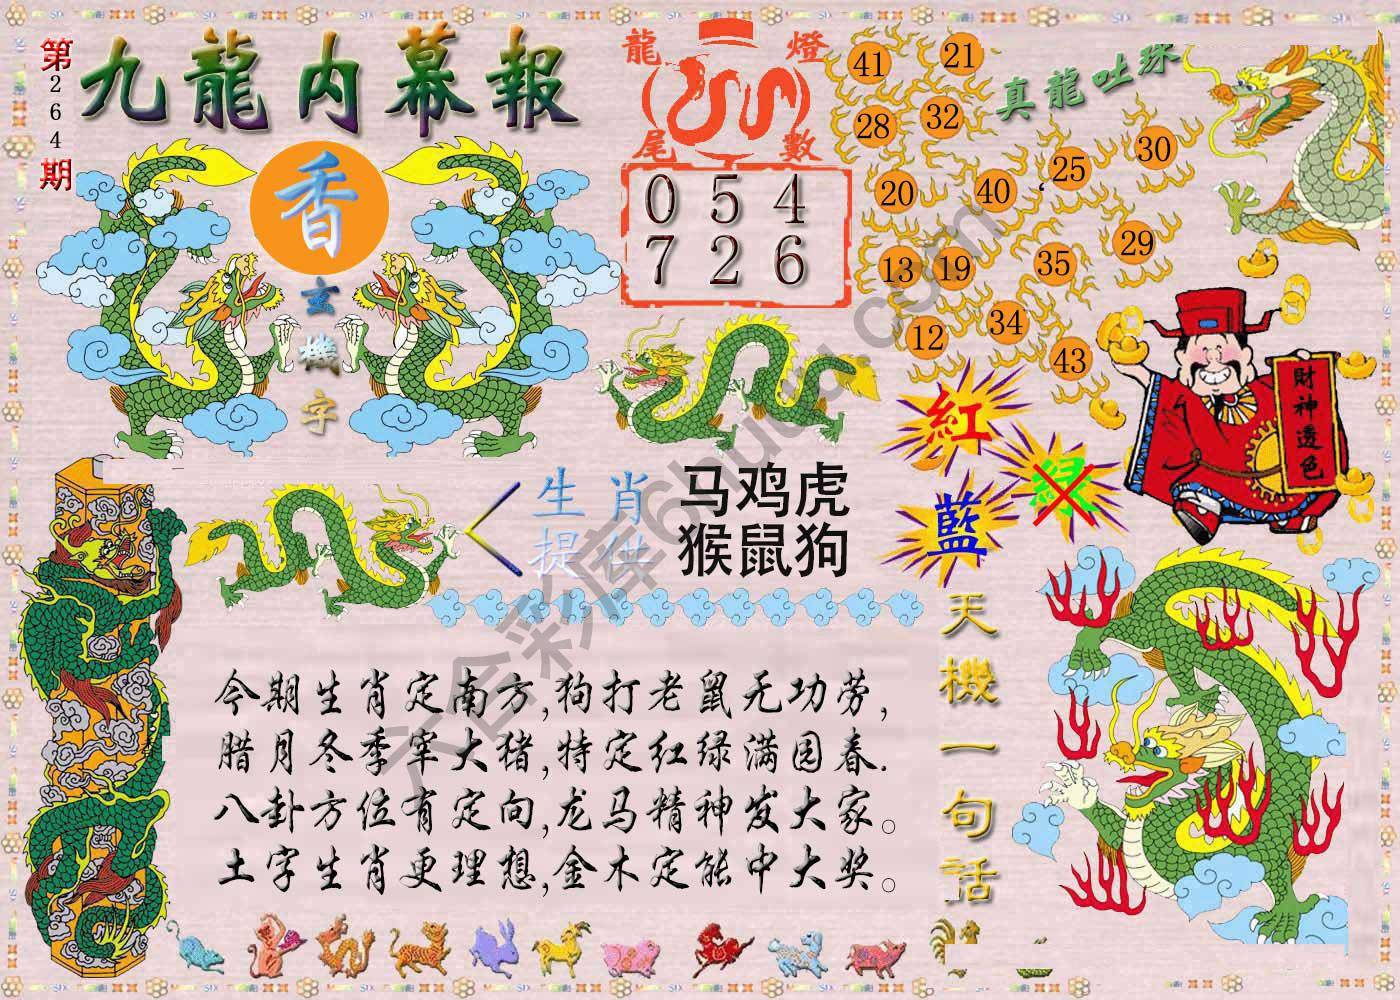 第264期
九龍内幕報
香
玄機字
龍燈尾數
0 5 4
7 2 6
41
21
28
32
真龍吐珠
30
25
20
40
29
13
19
35
12
34
43
財神透色
紅
綠
藍
生肖提供
马鸡虎
猴鼠狗
天機一句话
今期生肖定南方,狗打老鼠无功劳,
腊月冬季宰大猪,特定红绿满园春.
八卦方位有定向,龙马精神发大家。
土字生肖更理想,金木定能中大奖。
六合彩库6huuu.com